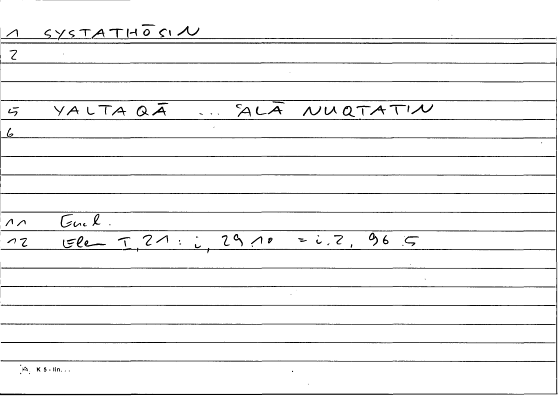 1 SYSTATHŌSIN
2
5 YALTAQĀ ... ʿALĀ NUQTATIN
6
11 Eucl.
12 Elem I, 21 : i, 29 10 = i. 2, 96 5
K 5 - lin...